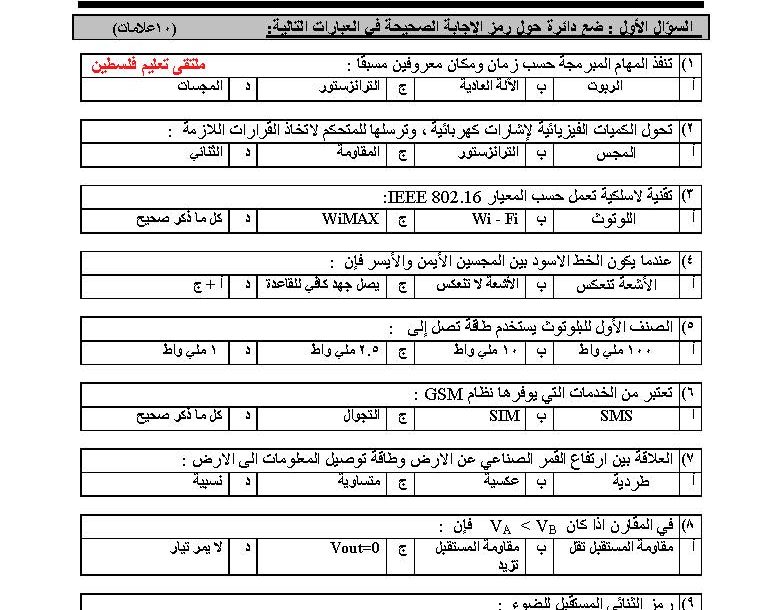 السؤال الأول : ضع دائرة حول رمز الإجابة الصحيحة في العبارات التالية: (١٠علامات)
١) تنفذ المهام المبرمجة حسب زمان ومكان معروفين مسبقا : ملتقى تعليم فلسطين
أ الربوت ب الآلة العادية ج الترانزستور د المجسات
٢) تحول الكميات الفيزيائية لإشارات كهربائية ، وترسلها للمتحكم لاتخاذ القرارات اللازمة :
أ المجس ب الترانزستور ج المقاومة د الثنائي
٣) تقنية لاسلكية تعمل حسب المعيار IEEE 802.16:
أ اللوتوث ب Wi - Fi ج WiMAX د كل ما ذكر صحيح
٤) عندما يكون الخط الاسود بين المجسين الأيمن والأيسر فإن :
أ الأشعة تنعكس ب الأشعة لا تنعكس ج يصل جهد كافي للقاعدة د أ + ج
٥) الصنف الأول للبلوتوث يستخدم طاقة تصل إلى :
أ ١٠٠ ملي واط ب ١٠ ملي واط ج ٢.٥ ملي واط د ١ ملي واط
٦) تعتبر من الخدمات التي يوفرها نظام GSM :
أ SMS ب SIM ج التجوال د كل ما ذكر صحيح
٧) العلاقة بين ارتفاع القمر الصناعي عن الارض وطاقة توصيل المعلومات الى الارض :
أ طردية ب عكسية ج متساوية د نسبية
٨) في المقارن اذا كان VA < VB فإن :
أ مقاومة المستقبل تقل ب مقاومة المستقبل تزيد ج Vout=0 د لا يمر تيار
٩) رمز الثنائي المستقبل للضوء :